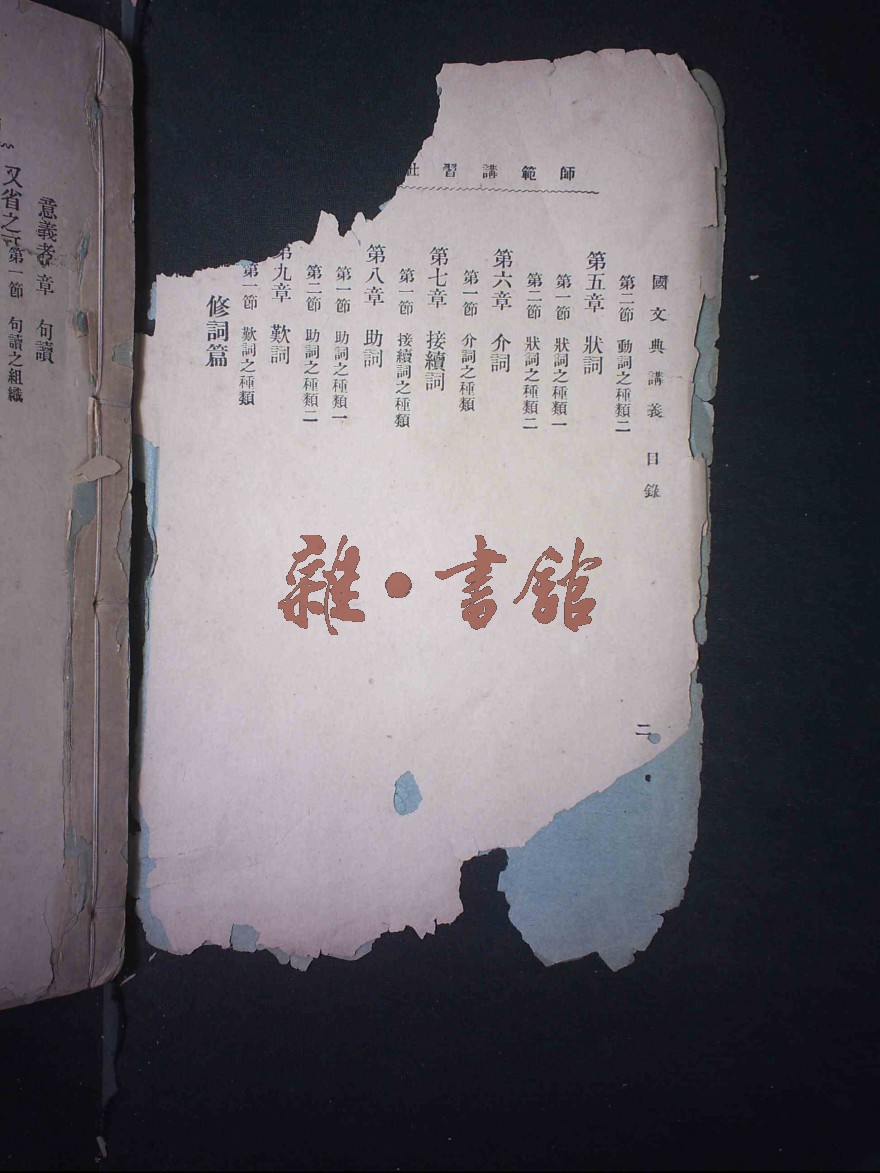 師範講習社
國文典講義 目錄
第二節 動詞之種類二
第五章 狀詞
第一節 狀詞之種類一
第二節 狀詞之種類二
第六章 介詞
第一節 介詞之種類
第七章 接續詞
第一節 接續詞之種類
第八章 助詞
第一節 助詞之種類一
第二節 助詞之種類二
第九章 歎詞
第一節 歎詞之種類
修詞篇
二
意義者
章 句讀
又省之
第一節 句讀之組織
雜·書館